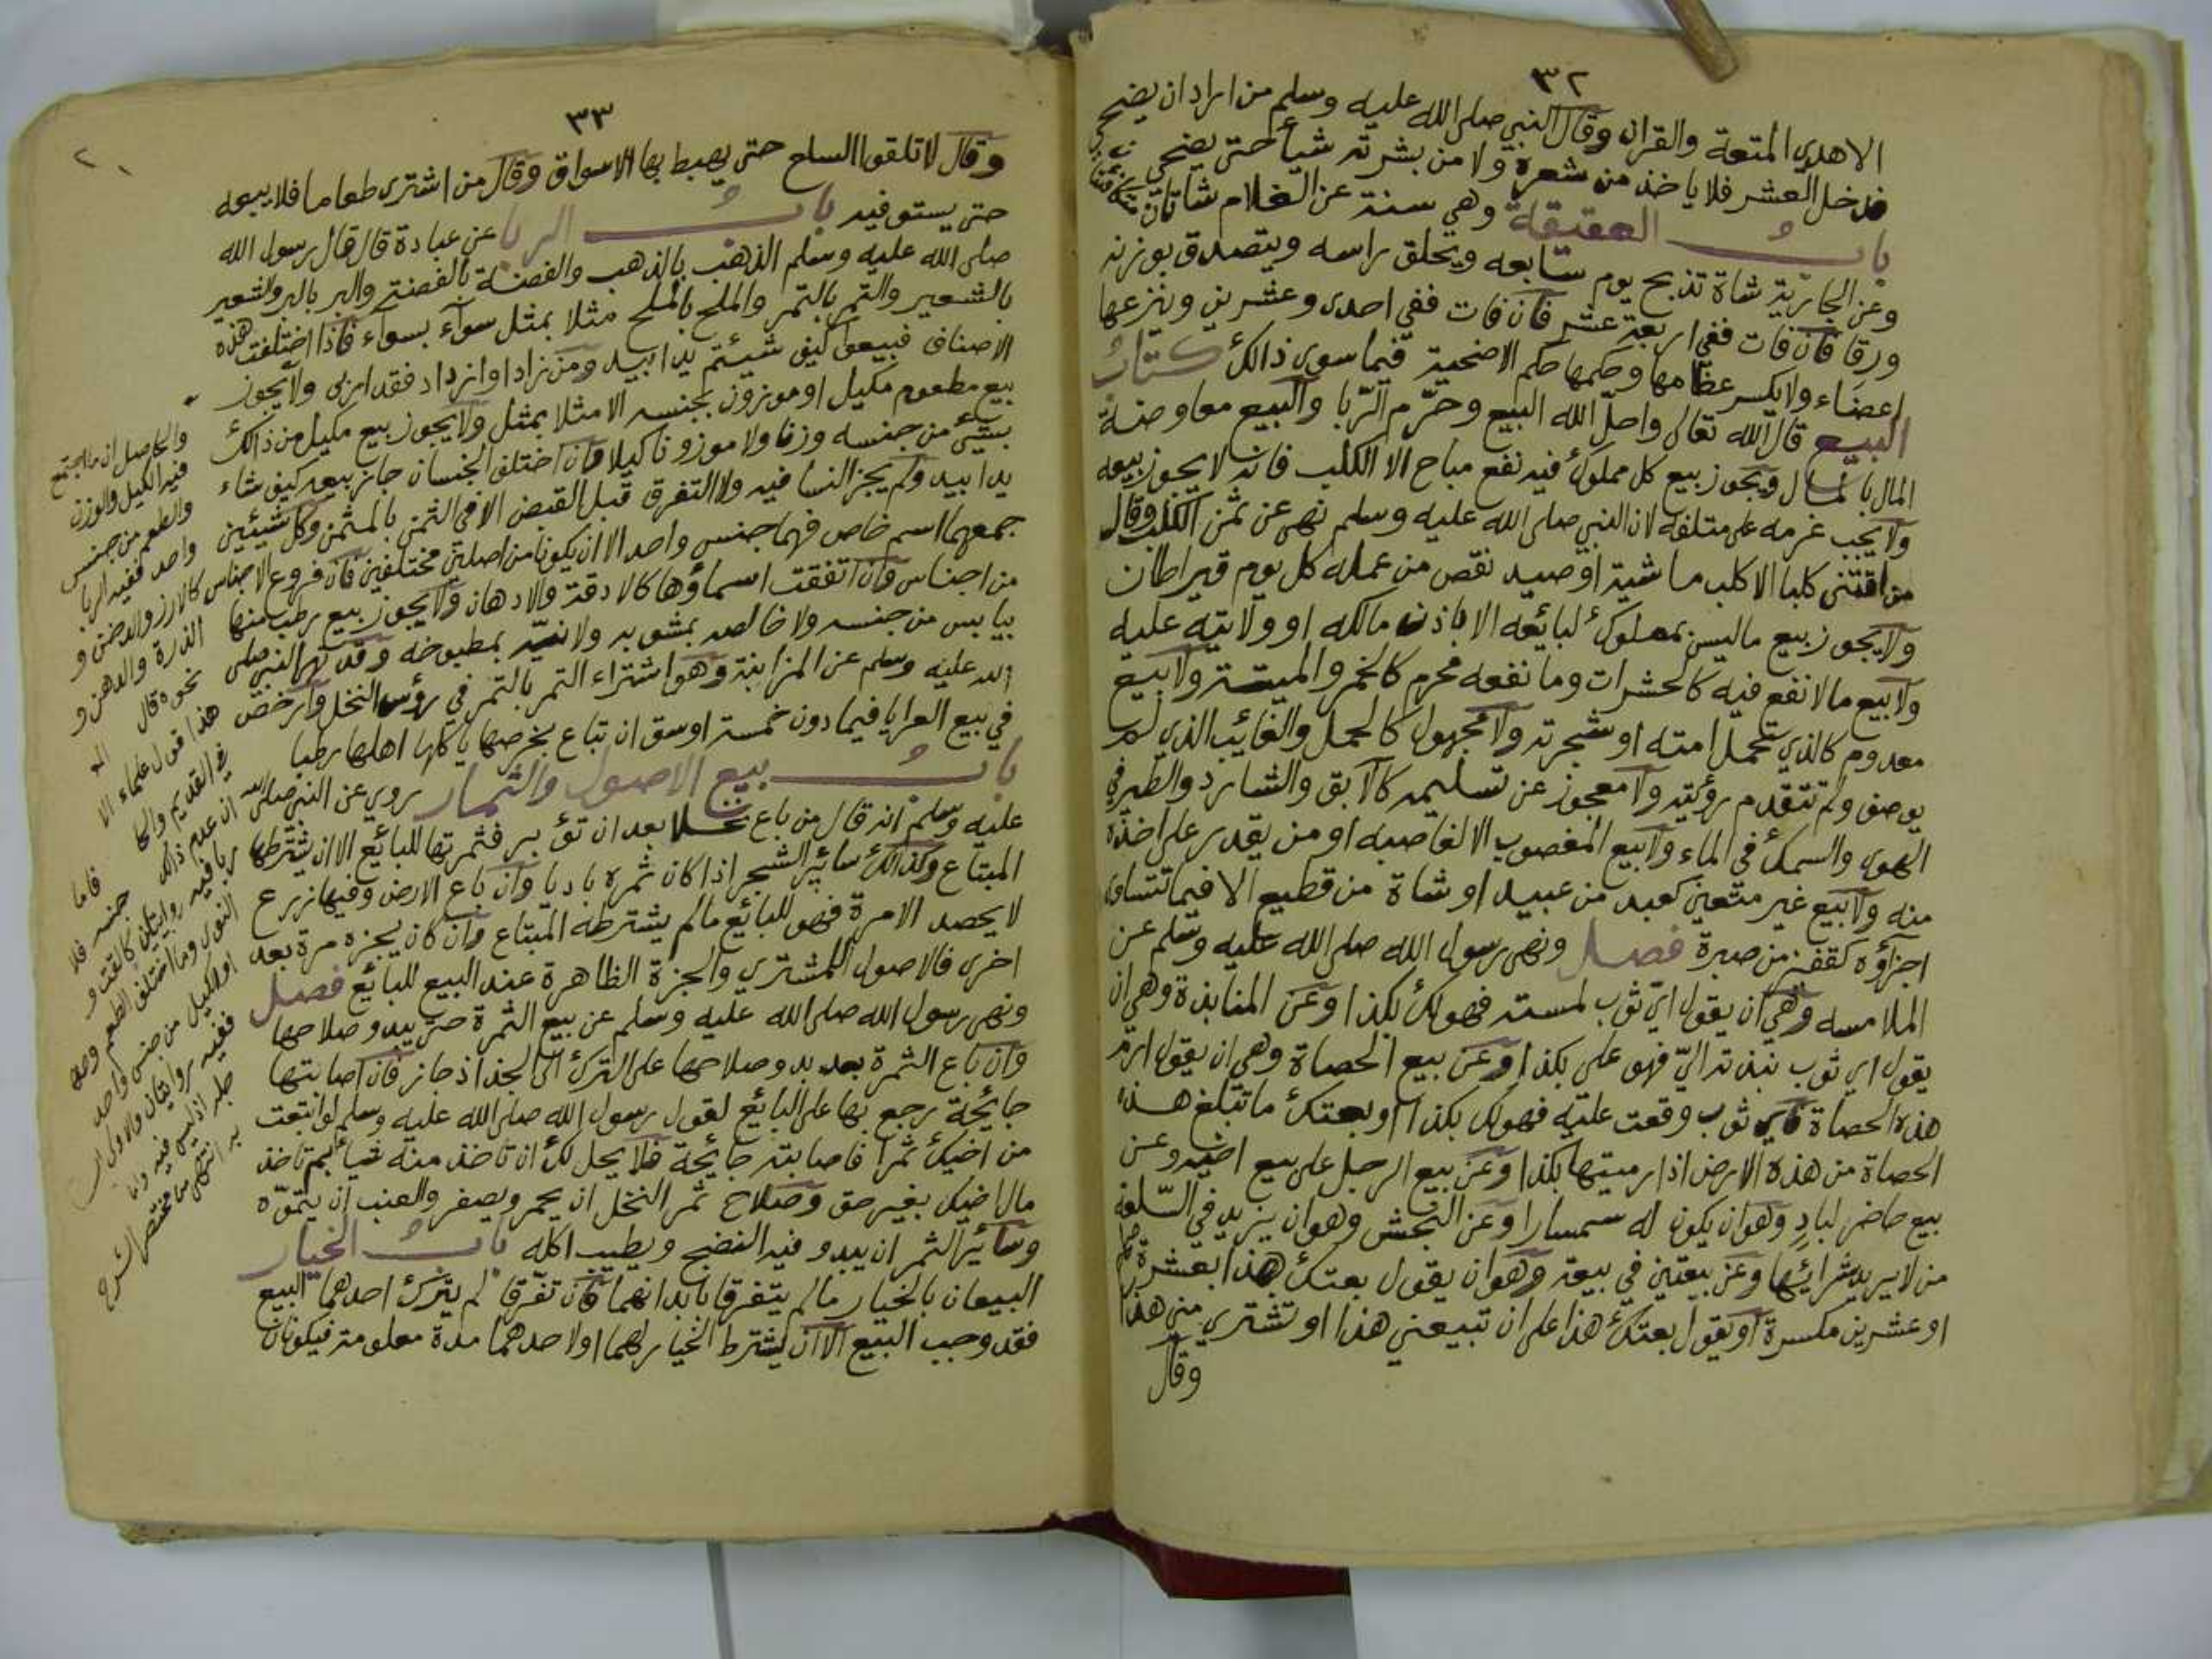 ٣٢
الاهدي المتعة والقران وقال النبي صلى الله عليه وسلم من اراد ان يضحي
فدخل العشر فلا ياخذ من شعره ولا من بشرته شيأ حتى يضحي
باب العقيقة وهي سنة عن الغلام شاتان متكافئتان
وعن الجارية شاة تذبح يوم سابعه ويحلق راسه ويتصدق بوزنه
ورقا فان فات ففي اربعة عشر فان فات ففي احدى وعشرين وينزعها
اعضاء ولا يكسر عظامها وحكمها حكم الاضحية فيما سوى ذالك كتاب
البيع قال الله تعالى واحل الله البيع وحرم الربا والبيع معاوضة
المال بالمال ويجوز بيع كل مملوك فيه نفع مباح الا الكلب فانه لا يجوز بيعه
ولا يجب غرمه على متلفه لان النبي صلى الله عليه وسلم نهى عن ثمن الكلب وقال
من اقتنى كلبا الا كلب ماشية او صيد نقص من عمله كل يوم قيراطان
ولا يجوز بيع ما ليس بمملوك لبائعه الا باذن مالكه او ولاية عليه
ولا بيع ما لا نفع فيه كالحشرات وما نفعه محرم كالخمر والميتة ولا بيع
معدوم كالذي تحمل امته او شجرته ولا مجهول كالحمل والغائب الذي لم
يوصف ولم تتقدم رؤيته ولا معجوز عن تسليمه كالآبق والشارد والطير في
الهوى والسمك في الماء ولا بيع المغصوب الا لغاصبه او من يقدر على اخذه
منه ولا بيع غير متعين كعبد من عبيد او شاة من قطيع الا فيما تتساوى
اجزاؤه كقفيز من صبرة فصل ونهى رسول الله صلى الله عليه وسلم عن
الملامسه وهي ان يقول اي ثوب لمسته فهو لك بكذا وعن المنابذة وهي ان
يقول اي ثوب نبذته الي فهو علي بكذا وعن بيع الحصاة وهي ان يقول ارم
هذه الحصاة فاي ثوب وقعت عليه فهو لك بكذا او بعتك ما تبلغ هذه
الحصاة من هذه الارض اذا رميتها بكذا وعن بيع الرجل على بيع اخيه وعن
بيع حاضر لباد وهو ان يكون له سمسارا وعن النجش وهو ان يزيد في السلعة
من لا يريد شرائها وعن بيعتين في بيعة وهو ان يقول بعتك هذا بعشرة صحاح
او عشرين مكسرة او يقول بعتك هذا على ان تبيعني هذا او تشتري مني هذا
وقال
٣٣
وقال لا تلقوا السلع حتى يهبط بها الاسواق وقال من اشترى طعاما فلا يبيعه
حتى يستوفيه باب الربا عن عبادة قال قال رسول الله
صلى الله عليه وسلم الذهب بالذهب والفضة بالفضة والبر بالبر والشعير
بالشعير والتمر بالتمر والملح بالملح مثلا بمثل سوآء بسوآء فاذا اختلفت هذه
الاصناف فبيعوا كيف شيئتم يدا بيد ومن زاد او ازداد فقد اربى ولا يجوز
بيع مطعوم مكيل او موزون بجنسه الا مثلا بمثل ولا يجوز بيع مكيل من ذالك
بشئ من جنسه وزنا ولا موزونا كيلا فان اختلف الجنسان جاز بيعه كيف شاء
يدا بيد ولم يجز النسا فيه ولا التفرق قبل القبض الا في الثمن بالمثمن وكل شيئين
جمعهما اسم خاص فهما جنس واحد الا ان يكونا من اصلين مختلفين فان فروع الاجناس
من اجناس وان اتفقت اسماؤها كالادقة والادهان ولا يجوز بيع رطب منها
بيابس من جنسه ولا خالصه بمشوبه ولا نيه بمطبوخه وقد نهى النبي صلى
الله عليه وسلم عن المزابنة وهو اشتراء التمر بالتمر في رؤس النخل وارخص
في بيع العرايا فيما دون خمسة اوسق ان تباع بخرصها ياكلها اهلها رطبا
باب بيع الاصول والثمار روي عن النبي صلى الله
عليه وسلم انه قال من باع نخلا بعد ان تؤبر فثمرتها للبائع الا ان يشترطها
المبتاع وكذالك سائر الشجر اذا كان ثمره باديا وان باع الارض وفيها زرع
لا يحصد الا مرة فهو للبائع مالم يشترطه المبتاع وان كان يجزه مرة بعد
اخرى فالاصول للمشتري والجزة الظاهرة عند البيع للبائع فصل
ونهى رسول الله صلى الله عليه وسلم عن بيع الثمرة حتى يبدو صلاحها
وان باع الثمرة بعد بدو صلاحها على الترك الى الجذاذ جاز فان اصابتها
جائحة رجع بها على البائع لقول رسول الله صلى الله عليه وسلم لو ابتعت
من اخيك ثمرا فاصابته جائحة فلا يحل لك ان تاخذ منه شيأ بم تاخذ
مال اخيك بغير حق وصلاح ثمر النخل ان يحمر ويصفر والعنب ان يتموه
وسائر الثمر ان يبدو فيه النضج ويطيب اكله باب الخيار
البيعان بالخيار مالم يتفرقا بابدانهما فان تفرقا لم يترك احدهما البيع
فقد وجب البيع الا ان يشترط الخيار لهما او لاحدهما مدة معلومة فيكونان
والحاصل ان ما اجتمع
فيه الكيل والوزن
والطعم من جنس
واحد ففيه الربا
كالارز والدخن و
الذرة والدهن و
نحوه قال
هذا قول علماء الا
في القديم والحا
ان عدم ذالك
ربا فيه روايتان كالقت و
النوى وما اختلف الطعم وصف
او الكيل من جنس واحد
ففيه روايتان والاولى
حله اذ ليس فيه
به انتهى من مختصر الشرح